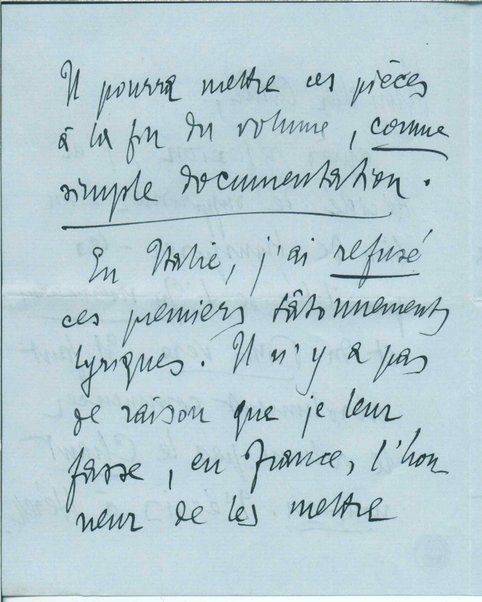 Il pourra mettre ces pièces
à la fin du volume, comme
simple documentation.
En Italie, j'ai refusé
ces premiers tâtonnements
lyriques. Il n'y a pas
de raison que je leur
fasse, en France, l'hon
neur de les mettre